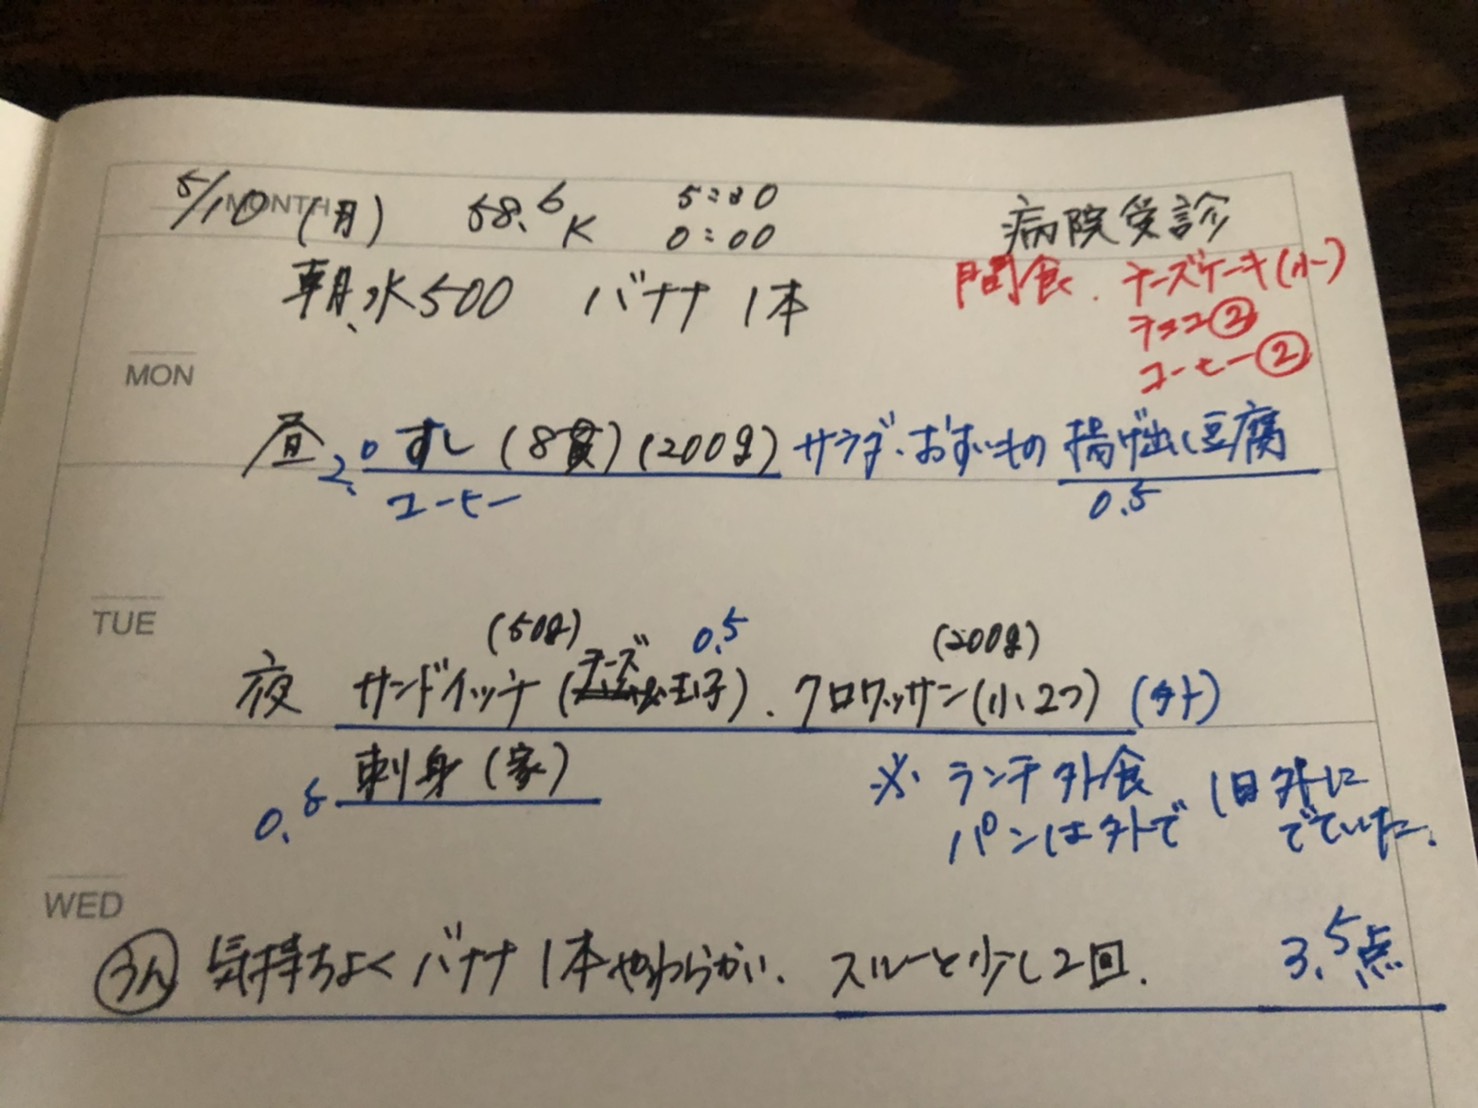 MONTH
5/10 (月) 58.6K 5:30 病院受診
0:00
朝、水500 バナナ 1本 間食. チーズケーキ(小)
チョコ②
コーヒー②
MON
昼 2.0 すし (8貫) (200g) サラダ・おすいもの 揚げ出し豆腐
コーヒー 0.5
TUE
(50g) 0.5 (200g)
夜 サンドイッチ (チーズ 玉子). クロワッサン(小2つ) (外)
0.5 刺身 (家) ※ ランチ外食 1日外に
パンは外で でていた.
WED
うん 気持ちよくバナナ1本やわらかい. スルーと少し2回. 3.5点